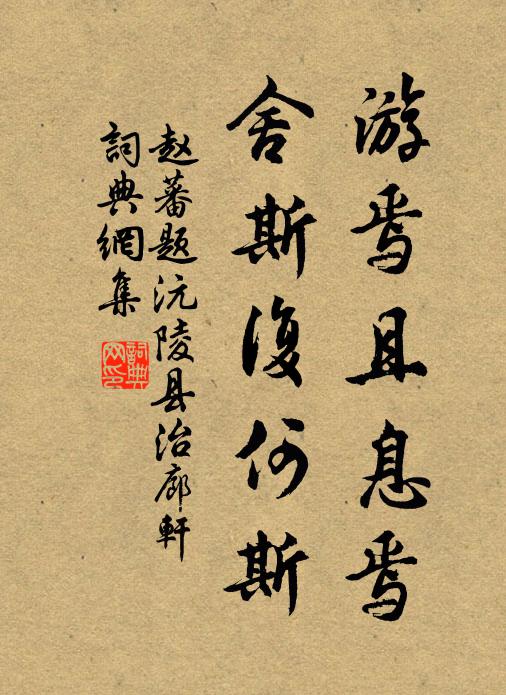 游焉且息焉
舍斯復何斯
赵蕃题沅陵县治廊軒
詞典網集
詞典
网印